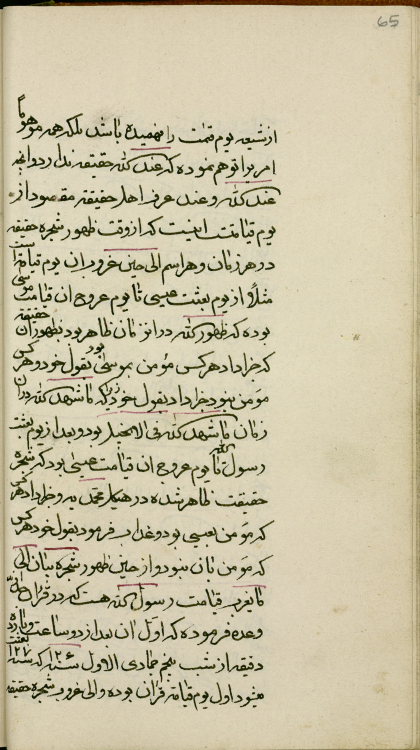 65
از شیعه یوم قیمت را فهمیده باشد بلکه همه موهوما
امریرا توهم نموده که عند الله حقیقه ندارد و آنچه
عند الله و عند عرف اهل حقیقه مقصود از
یوم قیامت اینست که از وقت ظهور شجره حقیقه
در هر زمان و هر اسم الی حین غروب ان یوم قیامة است
مثلا از یوم بعثت عیسی تا یوم عروج ان قیامت موسی
بوده که ظهور الله در انزمان ظاهر بود بظهور ان حقیقة
که جزا داد هر کس مؤمن بموسی بود بقول خود و هر کس
مؤمن نبود جزا داد بقول خود زیرا که ما شهد الله در ان
زمان ما شهد الله فی الانجیل بود و بعد از یوم بعثت
رسول الله تا یوم عروج ان قیامت عیسی بود که شجره
حقیقت ظاهر شده در هیکل محمدیه و جزا داد هر کس
که مؤمن بعیسی بود و عذاب فرمود بقول خود هر کس
که مؤمن بان نبود و از حین ظهور شجره بیان الی
ما یغرب قیامت رسول الله هست که در قران خداوند
وعده فرموده که اول ان بعد از دو ساعت و یازده
دقیقه از شب پنجم جمادی الاول سنه ۱۲۶۰ که سنه ۱۲۷۰ بعثت
میشود اول یوم قیامة قران بوده و الی غروب شجره حقیقه